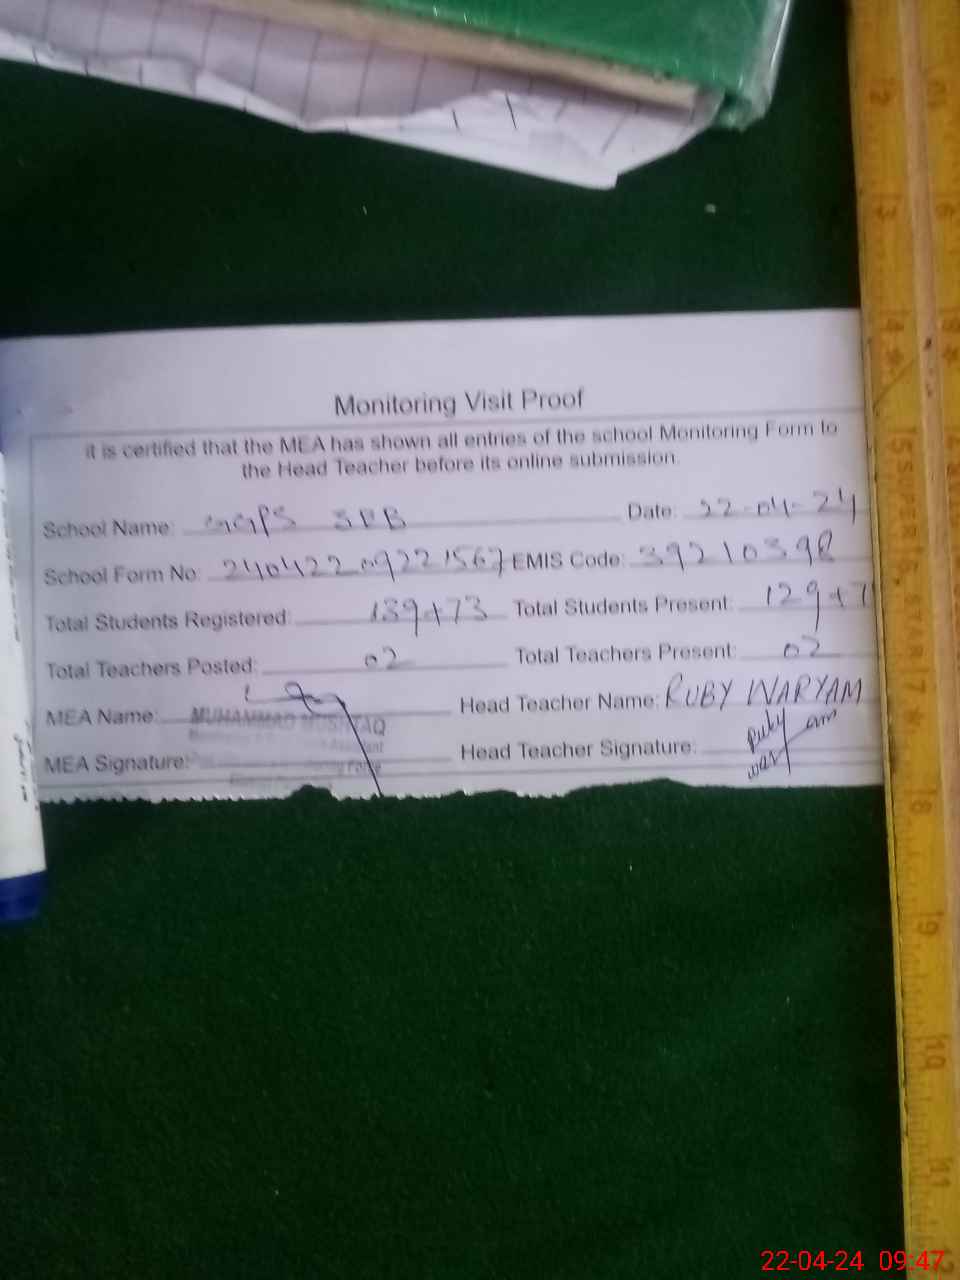 Monitoring Visit Proof
it is certified that the MEA has shown all entries of the school Monitoring Form to
the Head Teacher before its online submission.
School Name: GGPS 3PB Date: 22-04-24
School Form No: 24042209221567 EMIS Code: 39210398
Total Students Registered: 139+73 Total Students Present: 129+7
Total Teachers Posted: 02 Total Teachers Present: 02
MEA Name: MUHAMMAD MUSHTAQ Head Teacher Name: RUBY WARYAM
Assistant
MEA Signature: Head Teacher Signature: Ruby waryam
22-04-24 09:47